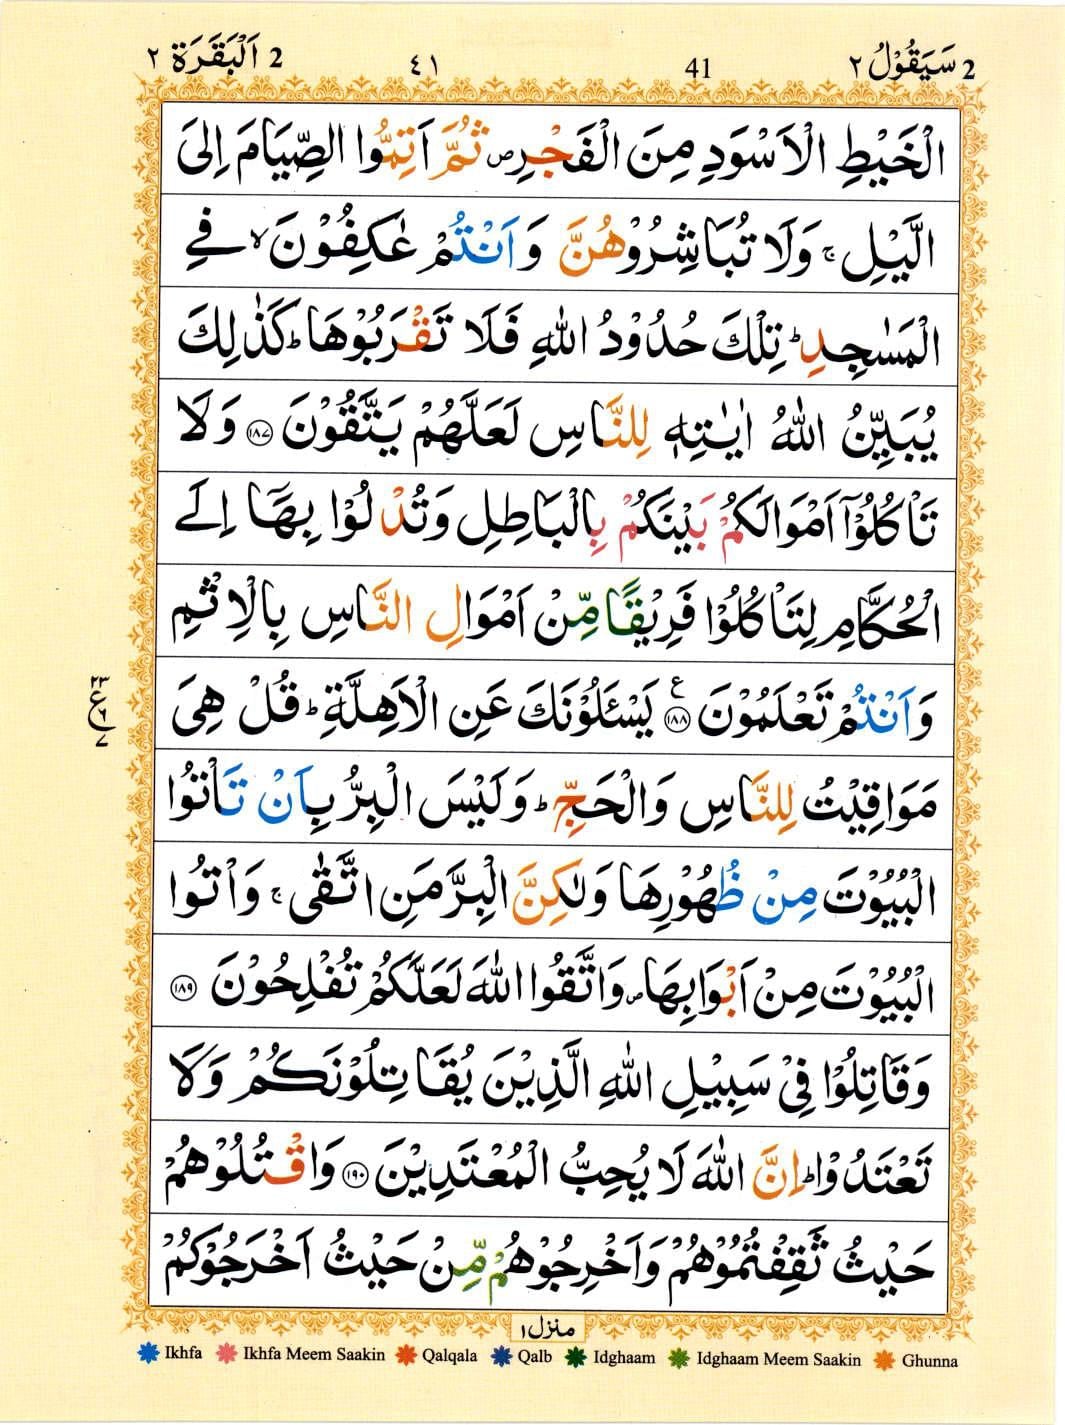 2 سَيَقُوْلُ ٢ 41 ٤١ 2 اَلْبَقَرَة ٢
الْخَيْطِ الْاَسْوَدِ مِنَ الْفَجْرِ ۪ ثُمَّ اَتِمُّوا الصِّيَامَ اِلَى
الَّيْلِ ۚ وَلَا تُبَاشِرُوْهُنَّ وَ اَنْتُمْ عٰكِفُوْنَ ۙ فِي
الْمَسٰجِدِ ؕ تِلْكَ حُدُوْدُ اللّٰهِ فَلَا تَقْرَبُوْهَا ؕ كَذٰلِكَ
يُبَيِّنُ اللّٰهُ اٰيٰتِهٖ لِلنَّاسِ لَعَلَّهُمْ يَتَّقُوْنَ ١٨٧ وَلَا
تَاْكُلُوْٓا اَمْوَالَكُمْ بَيْنَكُمْ بِالْبَاطِلِ وَتُدْلُوْا بِهَآ اِلَى
الْحُكَّامِ لِتَاْكُلُوْا فَرِيْقًا مِّنْ اَمْوَالِ النَّاسِ بِالْاِثْمِ
وَاَنْتُمْ تَعْلَمُوْنَ ١٨٨ ع يَسْـَٔلُوْنَكَ عَنِ الْاَهِلَّةِ ؕ قُلْ هِيَ
٢٣ ع ٦ ٧
مَوَاقِيْتُ لِلنَّاسِ وَالْحَجِّ ؕ وَلَيْسَ الْبِرُّ بِاَنْ تَاْتُوا
الْبُيُوْتَ مِنْ ظُهُوْرِهَا وَلٰكِنَّ الْبِرَّ مَنِ اتَّقٰى ۚ وَاْتُوا
الْبُيُوْتَ مِنْ اَبْوَابِهَا ۪ وَاتَّقُوا اللّٰهَ لَعَلَّكُمْ تُفْلِحُوْنَ ١٨٩
وَقَاتِلُوْا فِيْ سَبِيْلِ اللّٰهِ الَّذِيْنَ يُقَاتِلُوْنَكُمْ وَلَا
تَعْتَدُوْا ؕ اِنَّ اللّٰهَ لَا يُحِبُّ الْمُعْتَدِيْنَ ١٩٠ وَاقْتُلُوْهُمْ
حَيْثُ ثَقِفْتُمُوْهُمْ وَاَخْرِجُوْهُمْ مِّنْ حَيْثُ اَخْرَجُوْكُمْ
منزل ١
Ikhfa Ikhfa Meem Saakin Qalqala Qalb Idghaam Idghaam Meem Saakin Ghunna